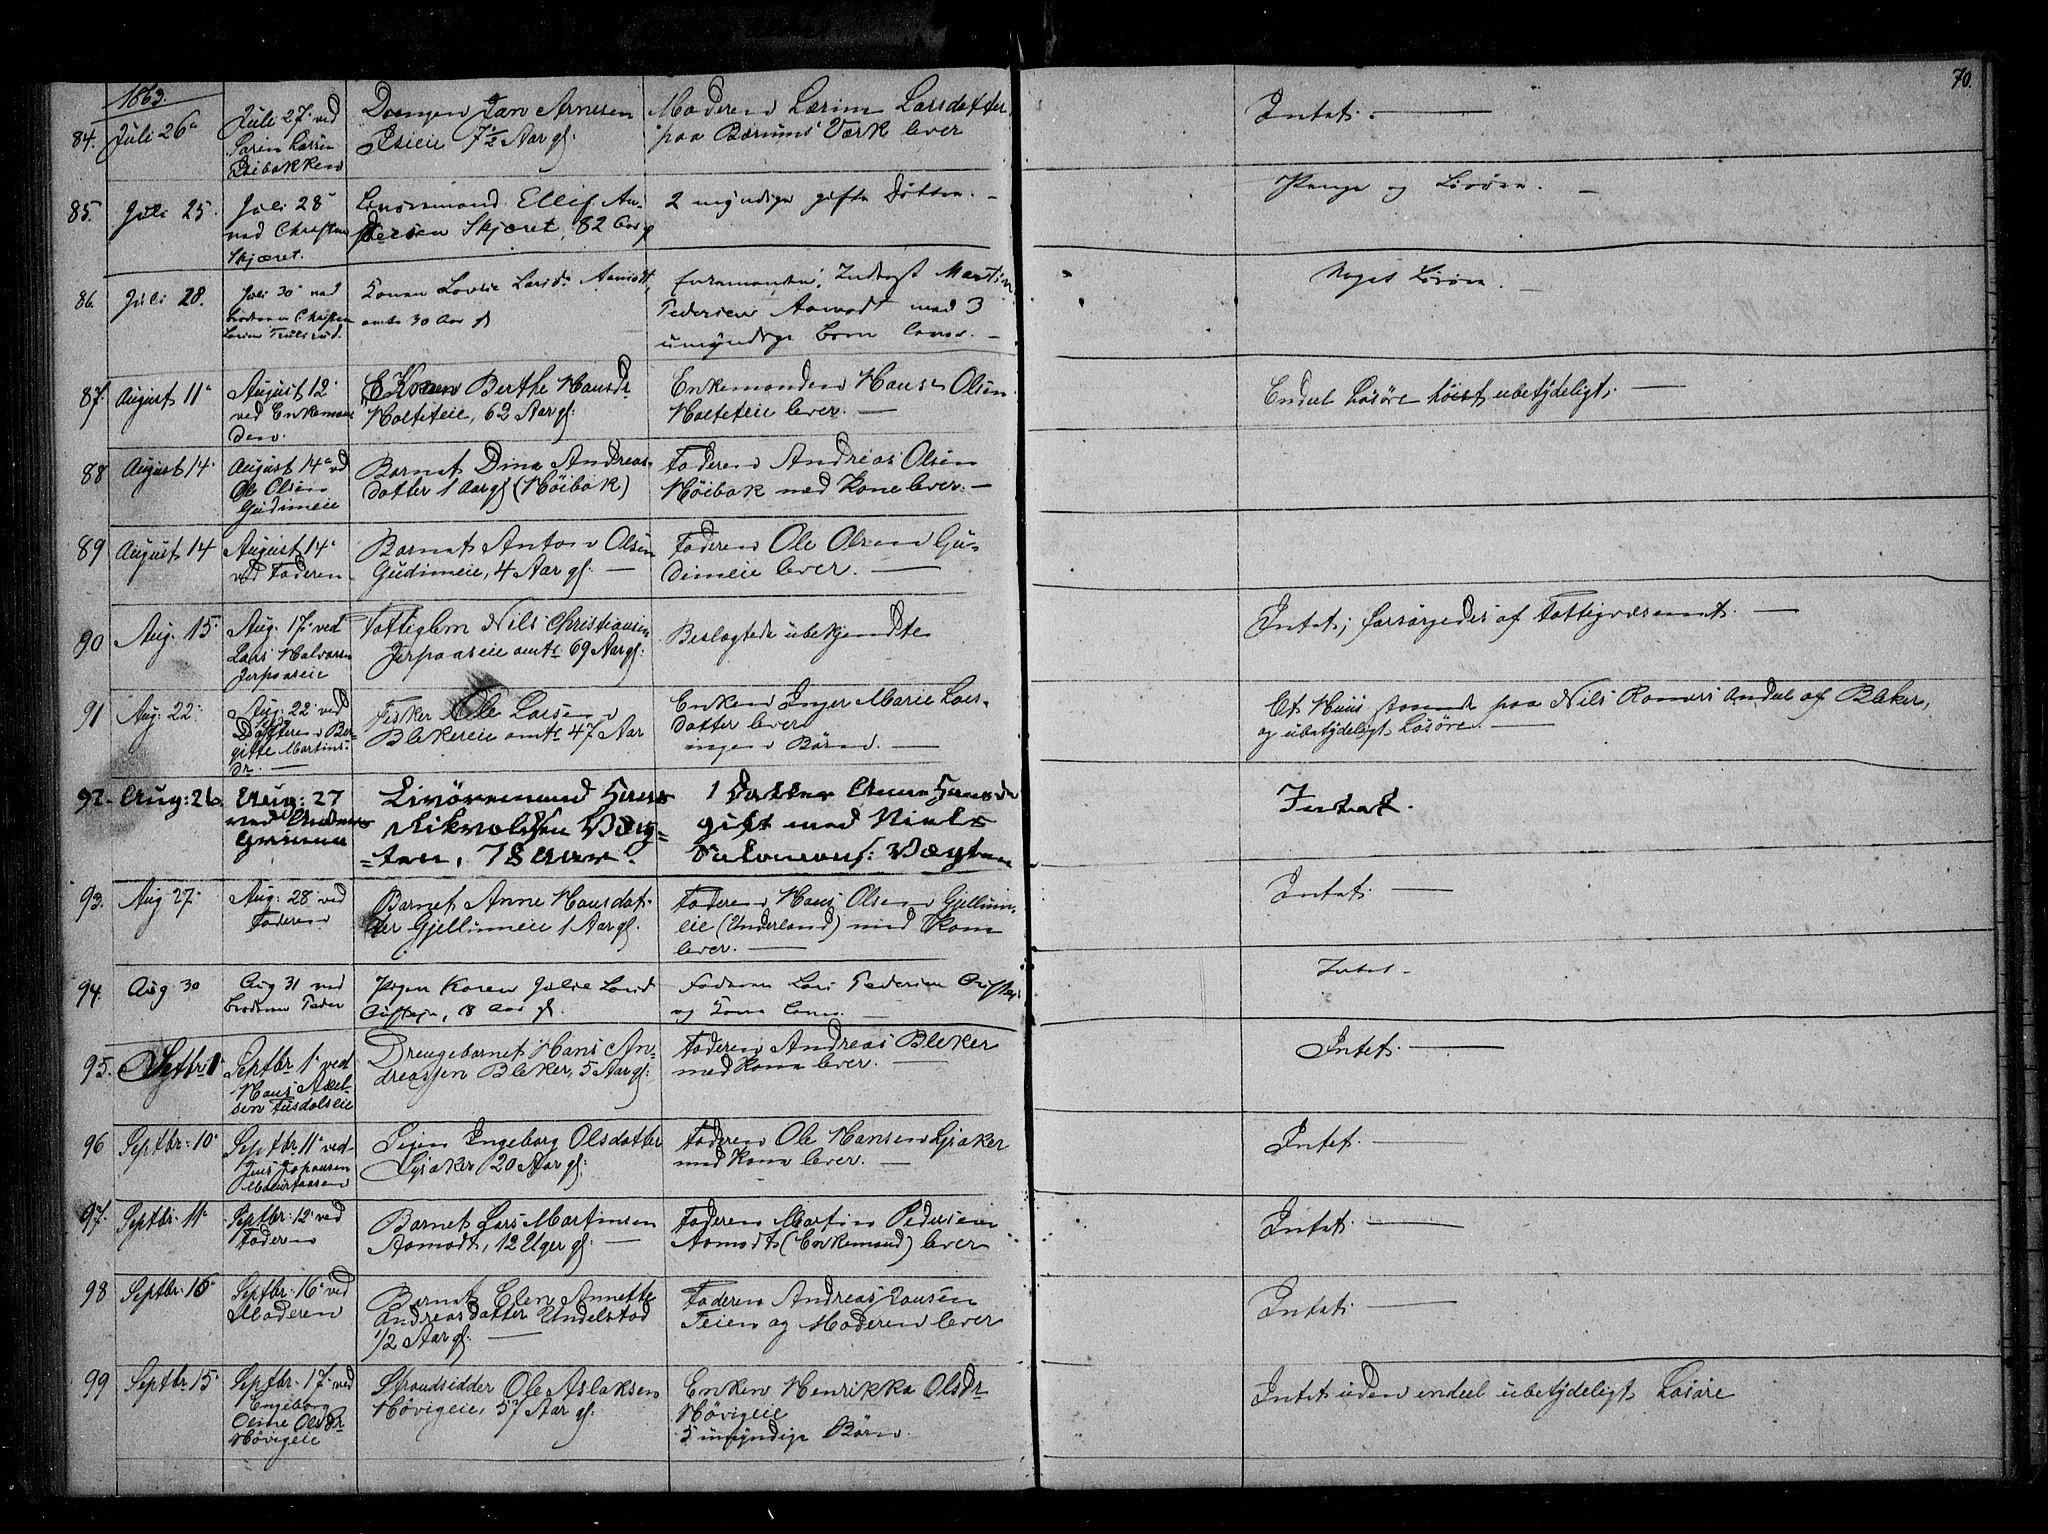 70.
1863.
84. Juli 26 Juli 27 ved
Bæibakken
Drengen Jan Arnesen
Isieie 7½ Aar gl.
Moderen Larsdatter
paa Bærums Værk lever
Intet.
85. Juli 25. Juli 28
ved Christen
Skjæret.
Ellif An-
dersen Skjæret, 82 Aar gl
2 myndige gifte Døttre. -
Penge og Løsøre. -
86. Juli 28. Juli 30 ved
Broderen Christen
Larsen
Konen Lovise Larsdr Aamodt,
omtr 30 Aar gl
Enkemanden, Inderst Martin
Pedersen Aamodt med 3
umyndige Børn lever. -
Noget Løsøre. -
87. August 11 August 12
ved Enkeman-
den.
Konen Berthe Hansdr
Holteteie, 62 Aar gl.
Enkemanden Hans Olsen
Holteteie lever. -
Endeel Løsøre høist ubetydeligt. -
88 August 14 August 14 ved
Ole Olsen
Gudimeie
Barnet Dina Andreas-
datter 1 Aar gl (Høibak)
Faderen Andreas Olsen
Høibak med Kone lever. -
89 August 14 August 14
ved Faderen
Barnet Anton Olsen
Gudimeie, 4 Aar gl. -
Faderen Ole Olsen Gu-
dimeie lever. -
90 Aug. 15 Aug. 17 ved
Lars Halvorsen
Jerpaaseie
Fattiglem Nils Christiansen
Jerpaaseie omtr 69 Aar gl.
Beslægtede ubekjendte
Intet; forsørgedes af Fattigvæsenet. -
91 Aug: 22 Aug: 22 ved
Datteren Ber-
gitte Martins-
dr. -
Fisker Ole Larsen
Blekereie omtr 47 Aar
Enken Inger Marie Lars-
datter lever
ingen Børn. -
Et Huus staaende paa Nils Romers Andeel af Bleker,
og ubetydeligt Løsøre. -
92. Aug: 26. Aug: 27
ved
Hans
Væg-
ten, 78 Aar.
1 Datter Anne Hansdr
gift med Niels
Salomons: Vægten
Intet.
93. Aug 27 Aug: 28 ved
Faderen
Barnet Anne Hansdat-
ter Gjellumeie 1 Aar gl.
Faderen Hans Olsen Gjellum-
eie (Underland) med Kone
lever. -
Intet. -
94. Aug 30 Aug 31 ved
Broderen Peder
Pigen Karen Julie Larsd
18 Aar gl.
Faderen Lars Pedersen
og Kone lever.
Intet -
95. Septbr 1 Septbr 1 ved
Hans Axel-
sen Tusdalseie
Drengebarnet Hans An-
dreassen Bleker, 5 Aar gl:
Faderen Andreas Bleker
med Kone lever. -
Intet. -
96 Septbr: 10 Septbr 11 ved
Jens Johansen
Pigen Ingeborg Olsdatter
Lysaker 20 Aar gl:
Faderen Ole Hansen Lysaker
med Kone lever. -
Intet. -
97. Septbr: 11 Septbr: 12 ved
Faderen
Barnet Lars Martinsen
Aamodt, 12 Uger gl: -
Faderen Martin Pedersen
Aamodt (Enkemand) lever
Intet. -
98 Septbr: 15 Septbr: 16 ved
Moderen
Barnet Elen Annette
Andreasdatter Undelstad
1/2 Aar gl: -
Faderen Andreas Hansen
Teien og Moderen lever
Intet. -
99 Septbr 15 Septbr. 17 ved
Engeborg
Oline Olsdr
Høvigeie
Strandsidder Ole Aslaksen
Høvigeie, 57 Aar gl:
Enken Henrikka Olsdr
Høvigeie
5 umyndige Børn.
Intet uden endeel ubetydeligt Løsøre